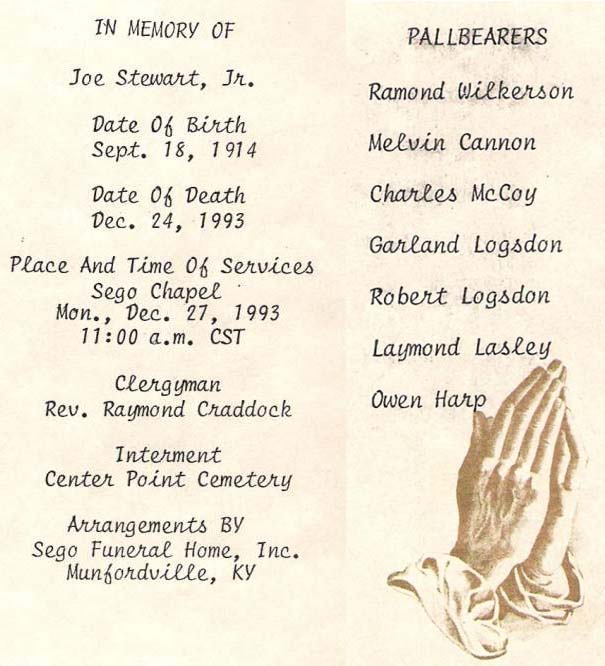 IN MEMORY OF
Joe Stewart, Jr.
Date Of Birth
Sept. 18, 1914
Date Of Death
Dec. 24, 1993
Place And Time Of Services
Sego Chapel
Mon., Dec. 27, 1993
11:00 a.m. CST
Clergyman
Rev. Raymond Craddock
Interment
Center Point Cemetery
Arrangements BY
Sego Funeral Home, Inc.
Munfordville, KY
PALLBEARERS
Ramond Wilkerson
Melvin Cannon
Charles McCoy
Garland Logsdon
Robert Logsdon
Laymond Lasley
Owen Harp